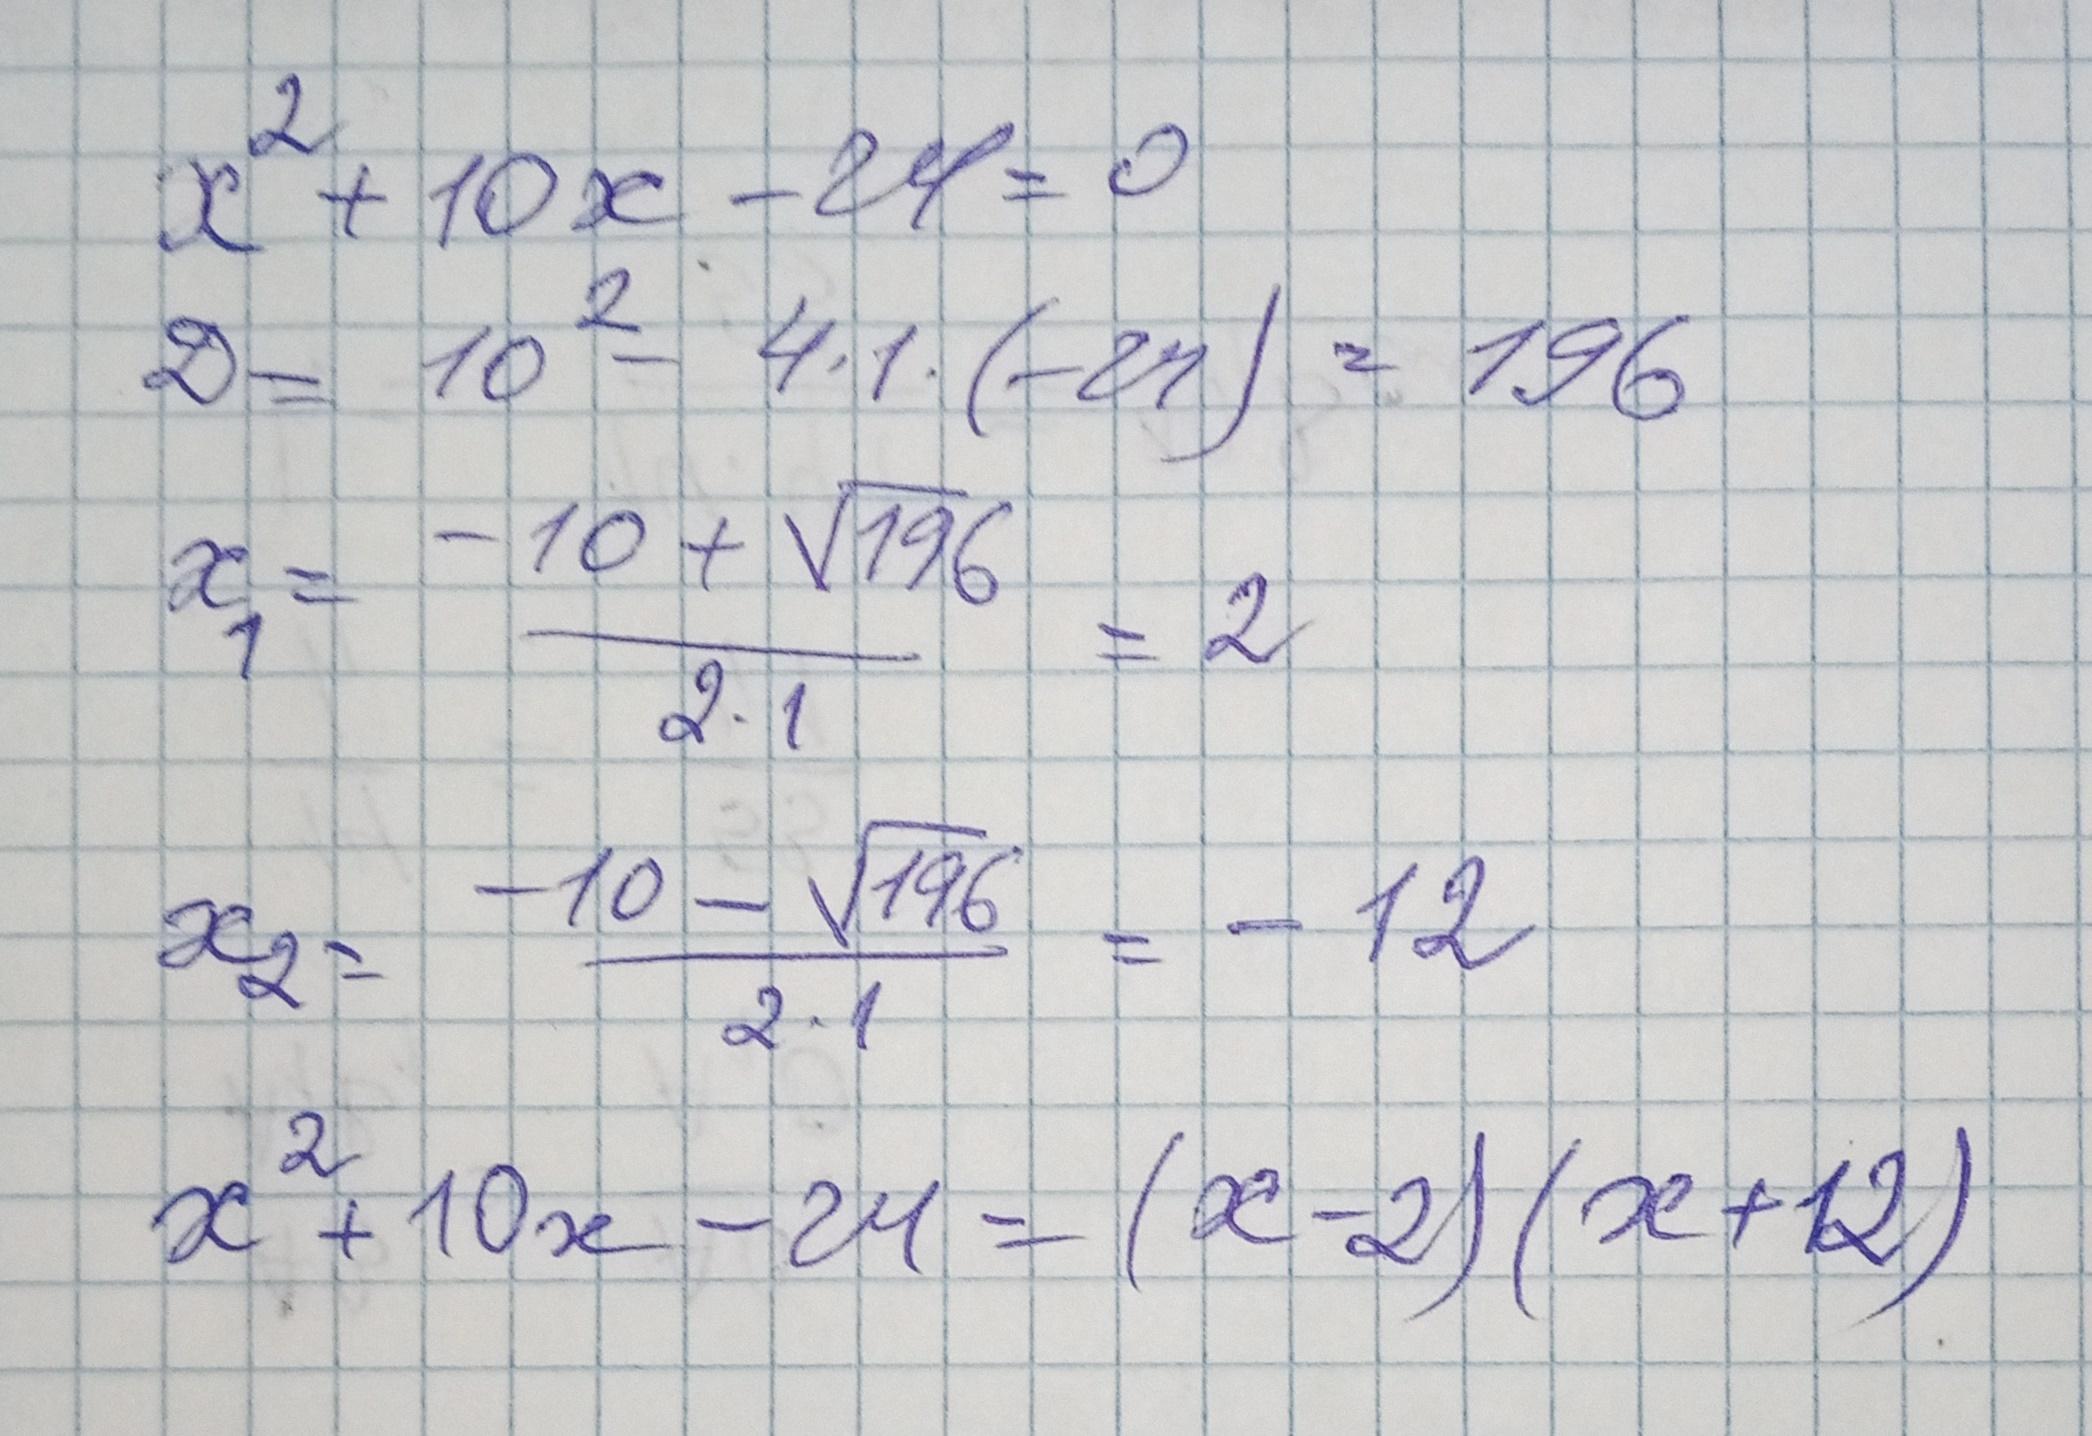 x² + 10x - 24 = 0
D = 10² - 4·1·(-24) = 196
x₁ = (-10 + √196)/(2·1) = 2
x₂ = (-10 - √196)/(2·1) = -12
x² + 10x - 24 = (x-2)(x+12)